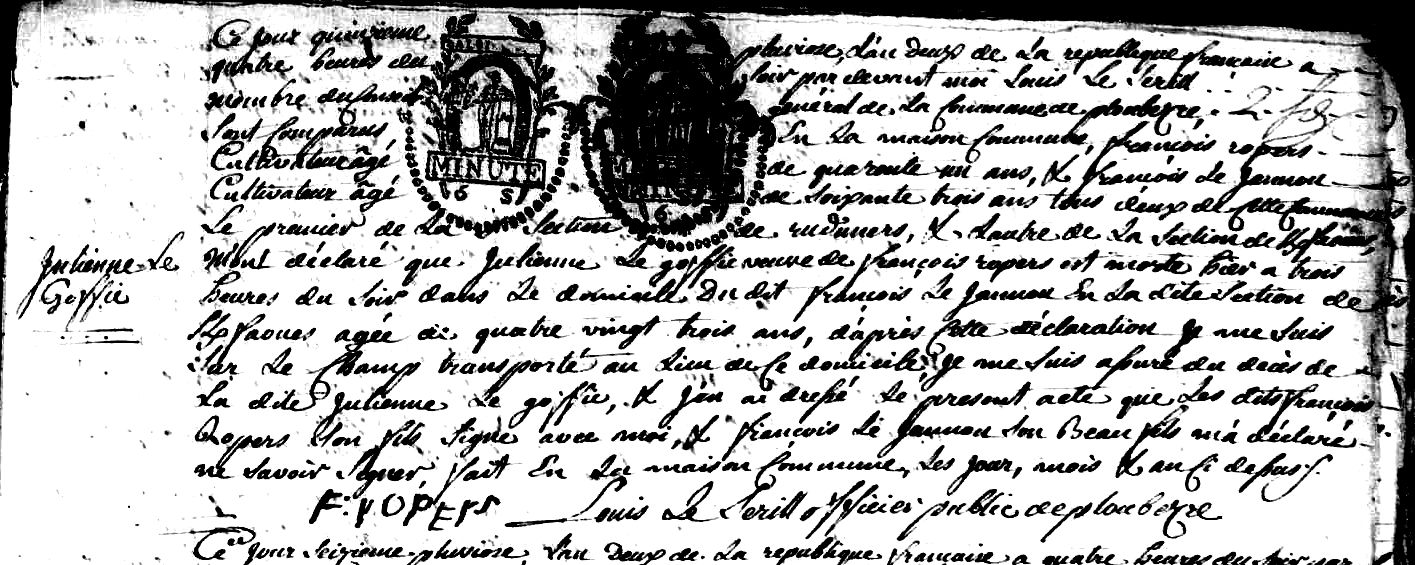 Ce jour quinzieme pluviose, l'an deux de la republique francaise a
quatre heures du soir par devant moi Louis Le Perill
membre du conseil Général de la Commune de ploubezre,
sont Comparus En la maison Commune, françois ropers
Cultivateur âgé de quaronte un ans, & francois Le Jannou
Cultivateur âgé de soixante trois ans tous deux de cette Commune
MINUTE
6 S
Le premier de la Section de ruduners, & Lautre de la Section de Kfaoues,
m'ont déclaré que Julienne Le goffic veuve de françois ropers est morte hier a trois
Julienne Le
Goffic
heures du soir dans Le domicile Du dit françois Le Jannou En la dite Section de
Kfaoues agée de quatre vingt trois ans, d'après Cette déclaration je me suis
sur Le Champ transporté au Lieu de Ce domicile, je me suis assuré du décès de
La dite Julienne Le goffic, & j'en ai dressé Le present acte que Les dits françois
Ropers son fils signe avec moi, & françois Le Jannou son Beau fils m'a déclaré
ne savoir signer, fait En La maison Commune, Les jour, mois & an Ci dessus.
F: ROPERS Louis Le Perill officier public de ploubezre
Ce jour seizieme pluviose, l'an Deux de La republique francaise a quatre heures du soir par